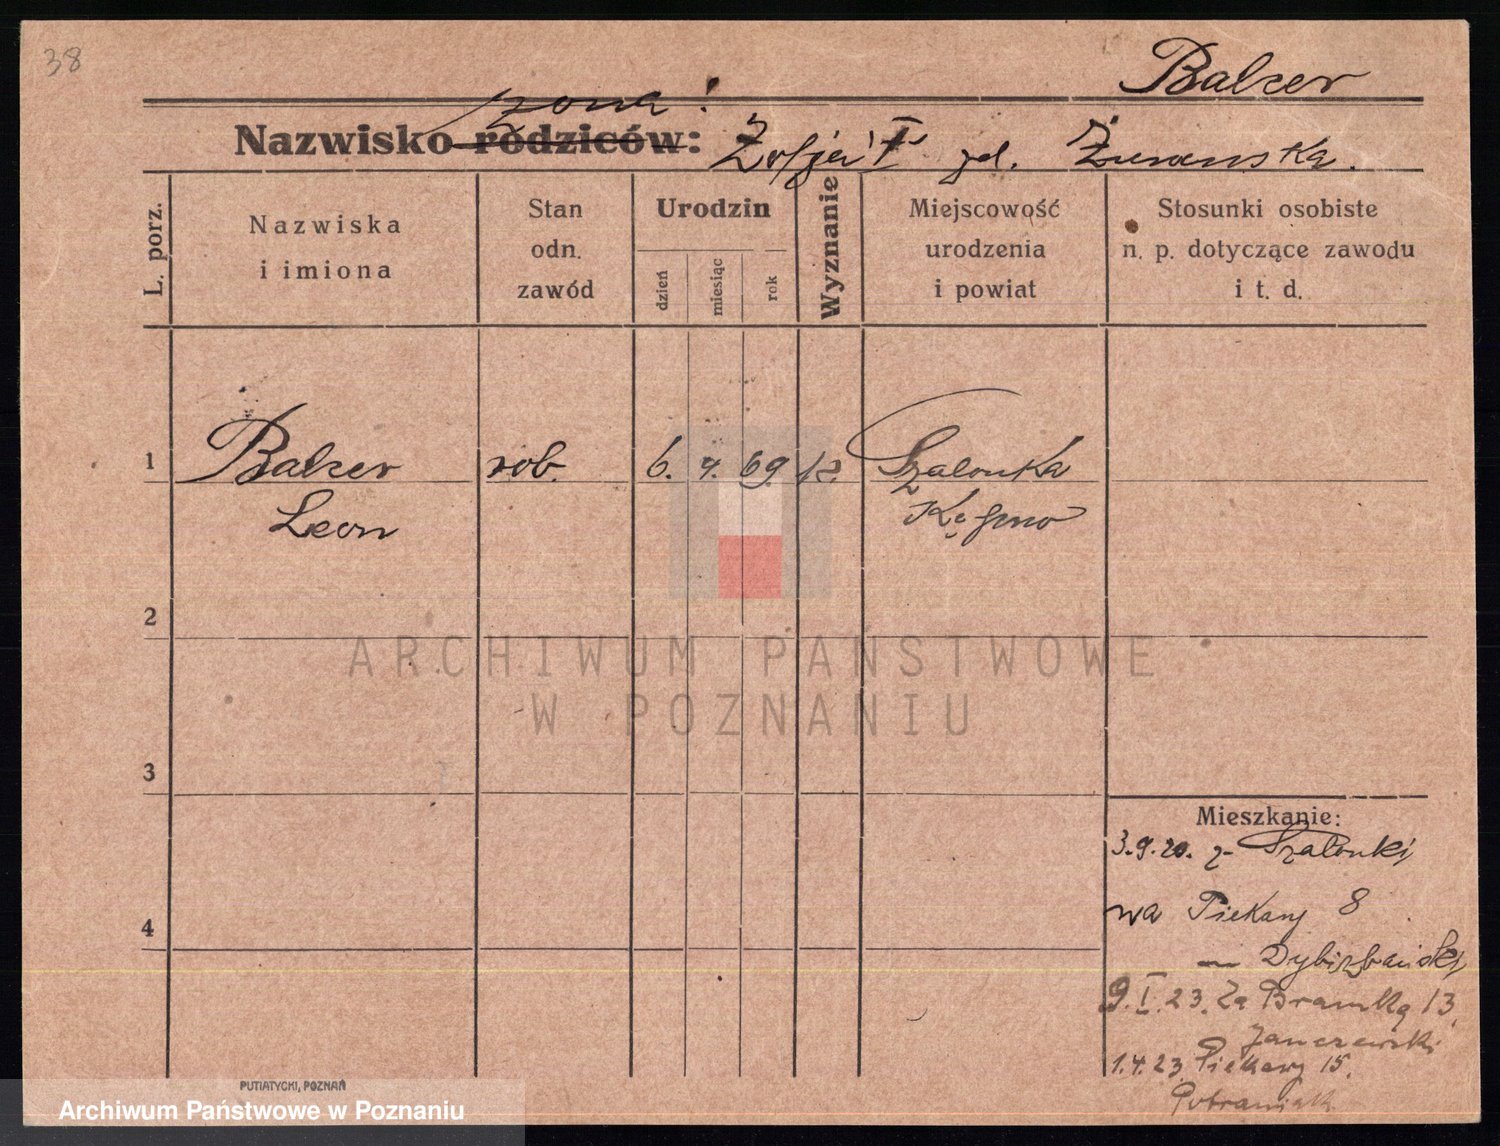 38
Balzer
żona:
Nazwisko rodziców: Zofja I gd. Żurawska.
L. porz.
Nazwiska
i imiona
Stan
odn.
zawód
Urodzin
dzień
miesiąc
rok
Wyznanie
Miejscowość
urodzenia
i powiat
Stosunki osobiste
n. p. dotyczące zawodu
i t. d.
1 Balzer rob. 6. 4. 69. k. Szalonka
Leon Kępno
2
3
4
Mieszkanie:
3.9.20. z Szalonki
na Piekary 8
Dybizbański
9.I.23. Za Bramką 13,
Janczewski
1.4.23 Piekary 15.
PUTIATYCKI, POZNAŃ
ARCHIWUM PAŃSTWOWE
W POZNANIU
Archiwum Państwowe w Poznaniu